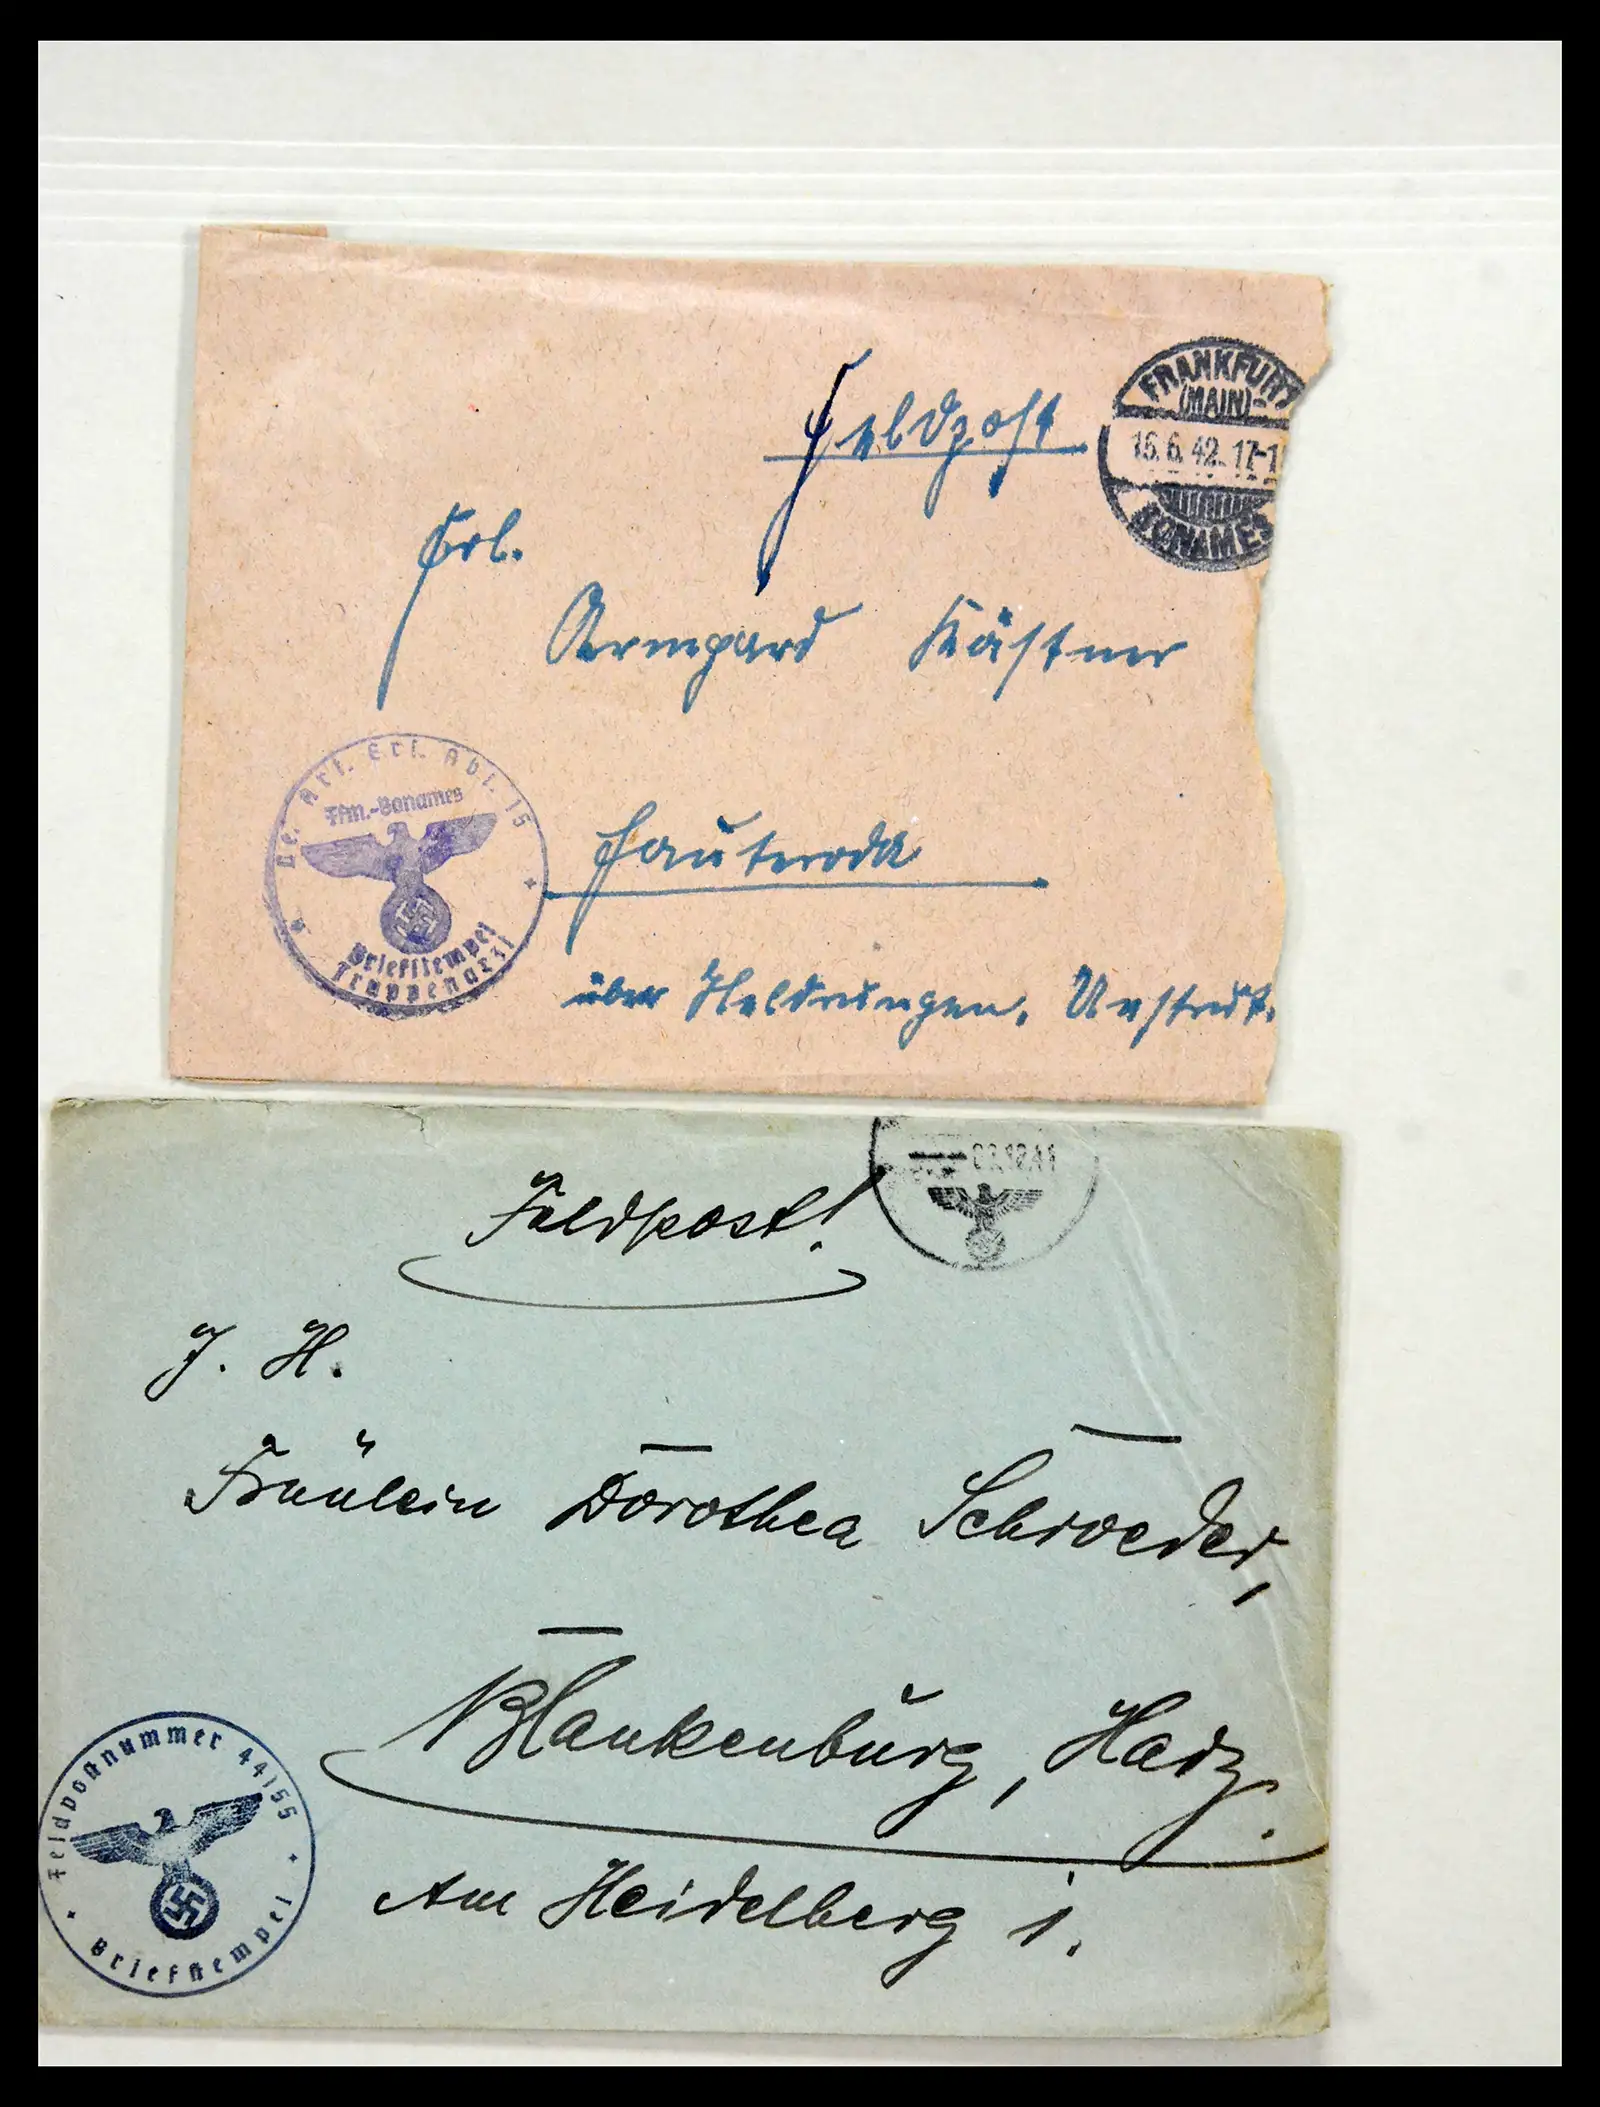 Feldpost
FRANKFURT
(MAIN)-
15.6.42.17-1
BONAMES
Frl.
Armgard Kästner
Art. Ers. Abt. 15
Ffm.-Bonames
Briefstempel
Truppenarzt
Hauteroda
über Heldrungen, Unstrut.
Feldpost!
12.41
J. H.
Fräulein Dorothea Schroeder,
Blankenburg, Harz.
Am Heidelberg 1.
Feldpostnummer 44155
Briefstempel